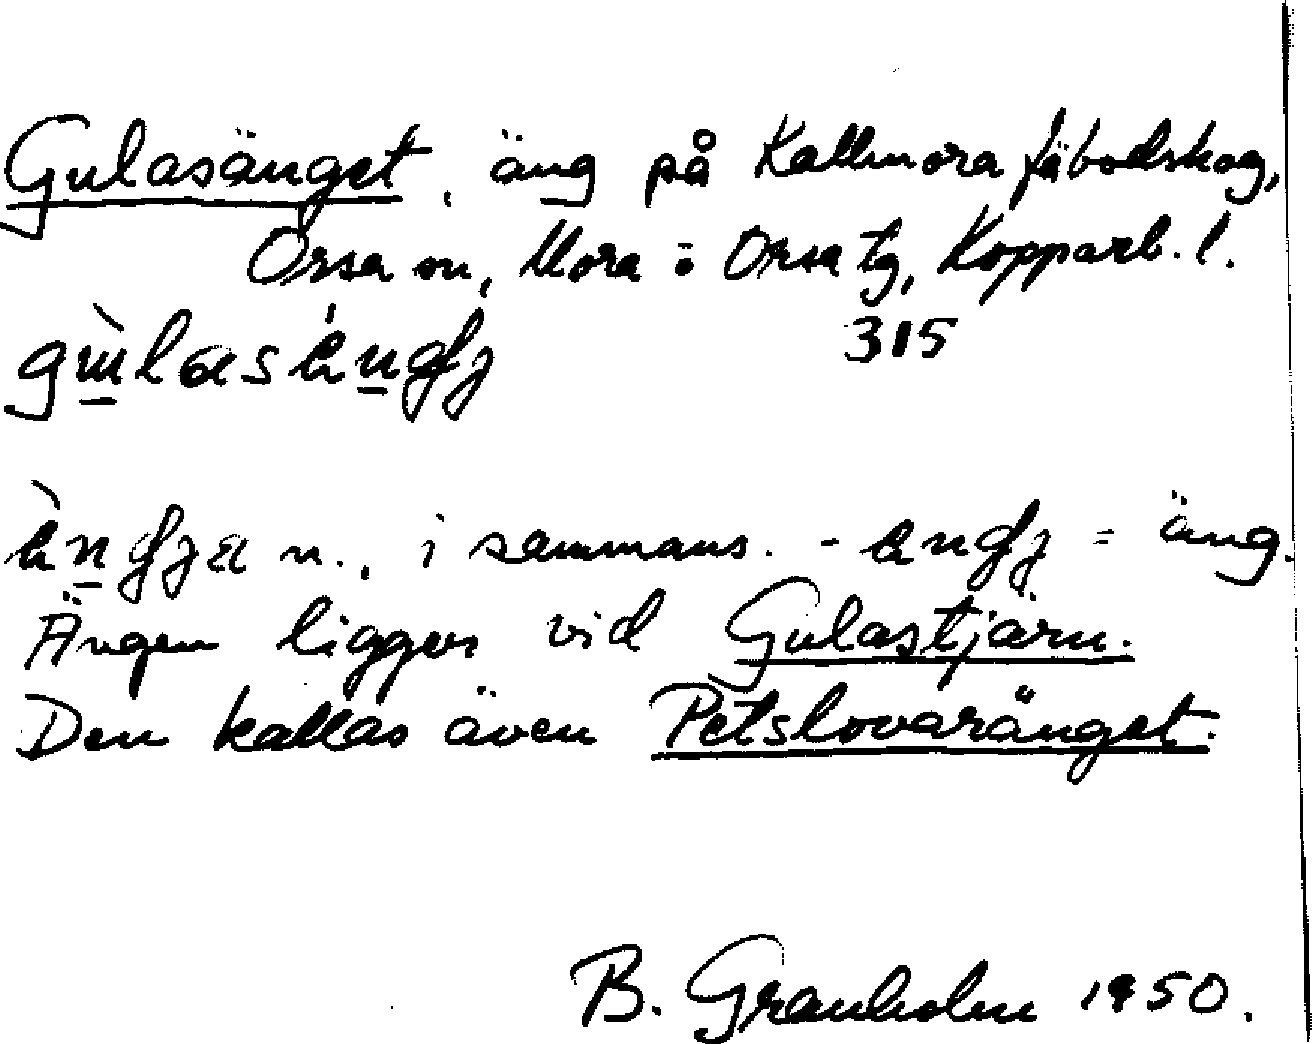 Gulasänget, äng på Kallmora fäbodskog,
Orsa sn, Mora o Orsa tg, Kopparb. l.
315
n., i sammans. - = äng.
Ängen ligger vid Gulastjärn.
Den kallas även Petslovaränget.
B. Granholm 1950.